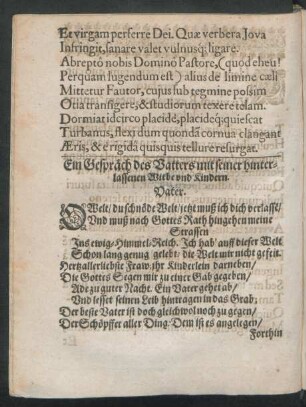 Et virgam perferre Dei. Quæ verbera Jova
Infringit, sanare valet vulnusq; ligare.
Abrepto nobis Domino Pastore, (quod eheu!
Perquàm lugendum est) alius de limine cœli
Mittetur Fautor, cujus sub tegmine possim
Otia transigere, & studiorum texere telam.
Dormiat idcirco placidè, placideq; quiescat
Turbanus, flexi dum quondã cornua clangant
Æris, & è rigidâ quisquis tellure resurgat.
Ein Gespräch des Vatters mit seiner hinter-
lassenen Witbe und Kindern.
Vater.
O Welt/ du schnöde Welt/ jetzt muß ich dich verlassẽ/
Und muß nach Gottes Rath hingehen meine
Strassen
Ins ewig Himmel-Reich. Ich hab' auff dieser Welt
Schon lang genug gelebt; die Welt mir nicht gefelt.
Hertzallerliebste Fraw/ ihr Kinderlein darneben/
Die Gottes Segen mir zu einer Gab gegeben/
Ade zu guter Nacht. Ein Vater gehet ab/
Und lesset seinen Leib hintragen in das Grab;
Der beste Vater ist doch gleichwol noch zu gegen/
Der Schöpffer aller Ding/ Dem ist es angelegen/
Forthin